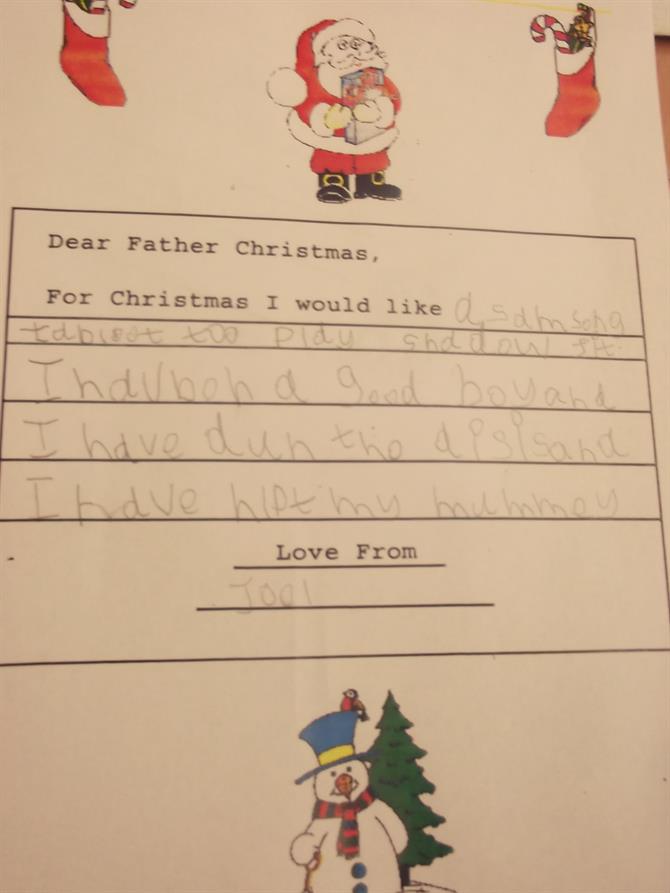 Dear Father Christmas,
For Christmas I would like a samsong
tableet too play shadow fit.
I havboh a good boy and
I have dun the diSiSand
I have hlpt my mummey
Love From
Jool